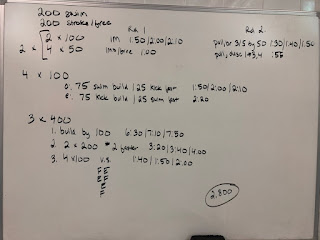 200 swim
200 stroke/free
Rd 1
Rd 2
2 x
2 x 100
IM 1:50/2:00/2:10
pull, br 3/5 by 50 1:30/1:40/1:50
4 x 50
1:00
pull, desc 1→3, 4 :55
4 x 100
o: 75 swim build / 25 kick fast
1:50/2:00/2:10
e: 75 kick build / 25 swim fast
2:20
3 x 400
1. builds by 100 6:30/7:10/7:50
2. 2 x 200 #2 faster 3:20/3:40/4:00
3. 4 x 100 v.s. 1:40/1:50/2:00
2,800